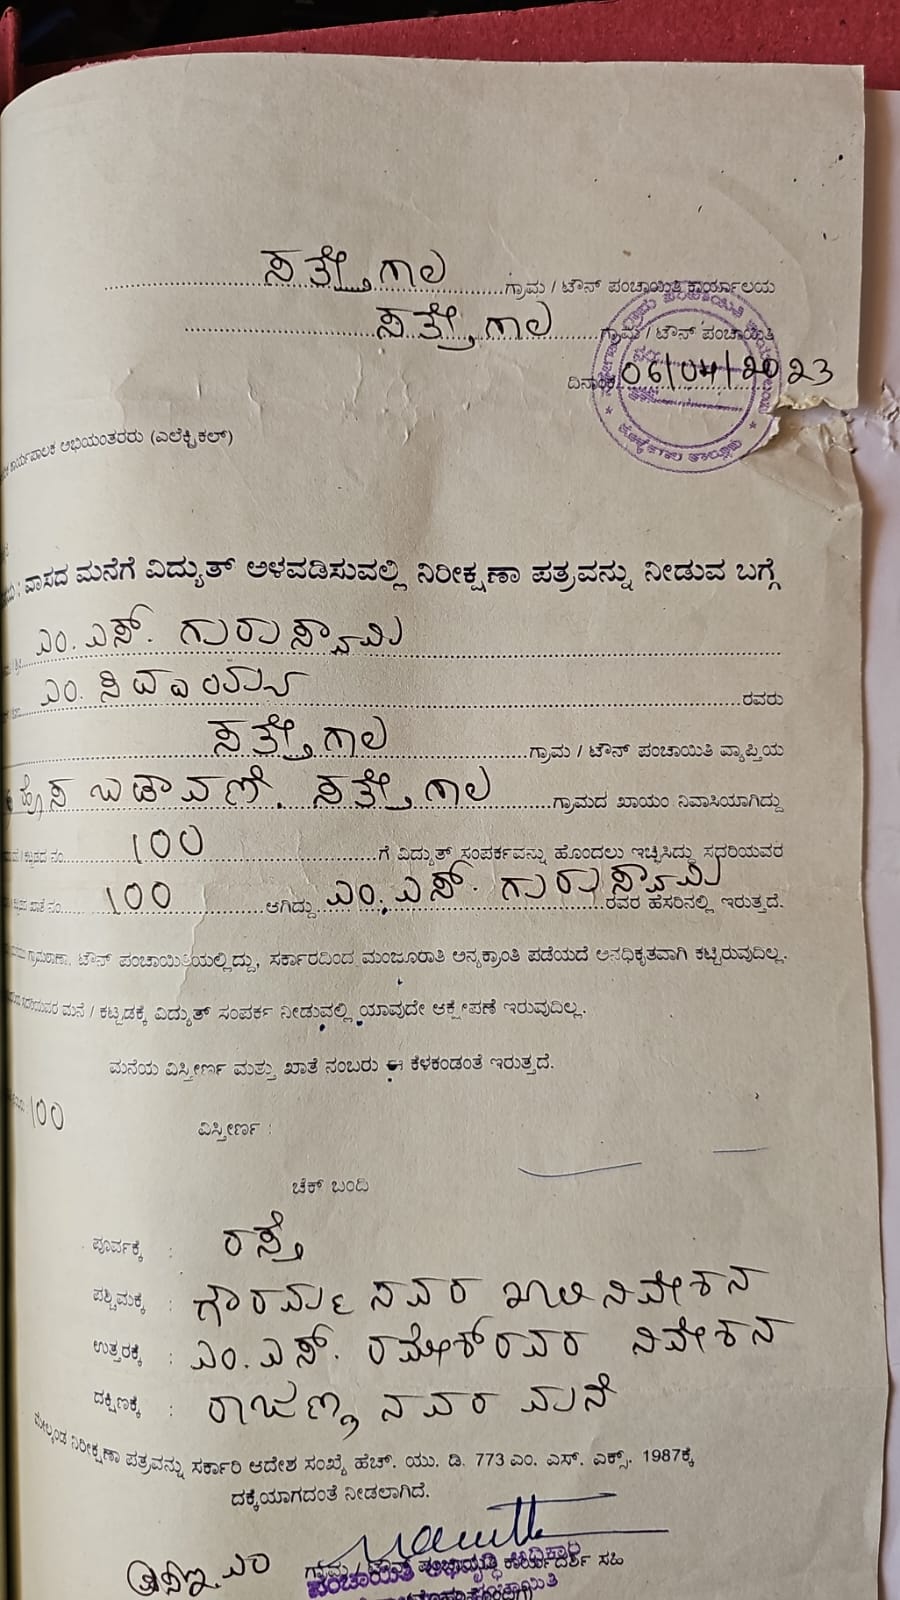 ಸತ್ತೇಗಾಲ ಗ್ರಾಮ / ಟೌನ್ ಪಂಚಾಯಿತಿ ಕಾರ್ಯಾಲಯ
ಸತ್ತೇಗಾಲ ಗ್ರಾಮ / ಟೌನ್ ಪಂಚಾಯಿತಿ
ದಿನಾಂಕ 06/04/2023
ಕಾರ್ಯಪಾಲಕ ಅಭಿಯಂತರರು (ಎಲೆಕ್ಟ್ರಿಕಲ್)
ವಾಸದ ಮನೆಗೆ ವಿದ್ಯುತ್ ಅಳವಡಿಸುವಲ್ಲಿ ನಿರೀಕ್ಷಣಾ ಪತ್ರವನ್ನು ನೀಡುವ ಬಗ್ಗೆ
ಎಂ. ಎಸ್. ಗುರುಸ್ವಾಮಿ
ಎಂ. ರವರು
ಸತ್ತೇಗಾಲ ಗ್ರಾಮ / ಟೌನ್ ಪಂಚಾಯಿತಿ ವ್ಯಾಪ್ತಿಯ
ಹೊಸ ಬಡಾವಣೆ, ಸತ್ತೇಗಾಲ ಗ್ರಾಮದ ಖಾಯಂ ನಿವಾಸಿಯಾಗಿದ್ದು
ನಂ. 100 ಗೆ ವಿದ್ಯುತ್ ಸಂಪರ್ಕವನ್ನು ಹೊಂದಲು ಇಚ್ಛಿಸಿದ್ದು ಸದರಿಯವರ
ಖಾತೆ ನಂ. 100 ಆಗಿದ್ದು ಎಂ. ಎಸ್. ಗುರುಸ್ವಾಮಿ ರವರ ಹೆಸರಿನಲ್ಲಿ ಇರುತ್ತದೆ.
ಗ್ರಾಮಠಾಣಾ, ಟೌನ್ ಪಂಚಾಯಿತಿಯಲ್ಲಿದ್ದು, ಸರ್ಕಾರದಿಂದ ಮಂಜೂರಾತಿ ಅನ್ಯಕ್ರಾಂತಿ ಪಡೆಯದೆ ಅನಧಿಕೃತವಾಗಿ ಕಟ್ಟಿರುವುದಿಲ್ಲ.
ಸದರಿಯವರ ಮನೆ / ಕಟ್ಟಡಕ್ಕೆ ವಿದ್ಯುತ್ ಸಂಪರ್ಕ ನೀಡುವಲ್ಲಿ ಯಾವುದೇ ಆಕ್ಷೇಪಣೆ ಇರುವುದಿಲ್ಲ.
ಮನೆಯ ವಿಸ್ತೀರ್ಣ ಮತ್ತು ಖಾತೆ ನಂಬರು ಈ ಕೆಳಕಂಡಂತೆ ಇರುತ್ತದೆ.
100
ವಿಸ್ತೀರ್ಣ :
ಚೆಕ್ ಬಂದಿ
ಪೂರ್ವಕ್ಕೆ : ರಸ್ತೆ
ಪಶ್ಚಿಮಕ್ಕೆ : ಗೌರಮ್ಮ ನವರ ಖಾಲಿ ನಿವೇಶನ
ಉತ್ತರಕ್ಕೆ : ಎಂ. ಎಸ್. ರಮೇಶ್ ರವರ ನಿವೇಶನ
ದಕ್ಷಿಣಕ್ಕೆ : ರಾಜಣ್ಣ ನವರ ಮನೆ
ಮೇಲ್ಕಂಡ ನಿರೀಕ್ಷಣಾ ಪತ್ರವನ್ನು ಸರ್ಕಾರಿ ಆದೇಶ ಸಂಖ್ಯೆ ಹೆಚ್. ಯು. ಡಿ. 773 ಎಂ. ಎಸ್. ಎಕ್ಸ್. 1987ಕ್ಕೆ
ದಕ್ಕೆಯಾಗದಂತೆ ನೀಡಲಾಗಿದೆ.
ಗ್ರಾಮ / ಟೌನ್ ಪಂಚಾಯಿತಿ ಕಾರ್ಯದರ್ಶಿ ಸಹಿ
ಪಂಚಾಯಿತಿ ಅಭಿವೃದ್ಧಿ ಅಧಿಕಾರಿ